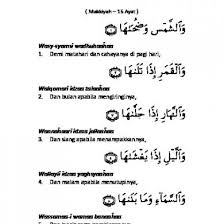 ( Makkiyah – 15 Ayat )
وَٱلشَّمْسِ وَضُحَىٰهَا ١
Wasy-syamsi wadhuhaahaa
1. Demi matahari dan cahayanya di pagi hari,
وَٱلْقَمَرِ إِذَا تَلَىٰهَا ٢
Walqamari idzaa talaahaa
2. Dan bulan apabila mengiringinya,
وَٱلنَّهَارِ إِذَا جَلَّىٰهَا ٣
Wannahaari idzaa jallaahaa
3. Dan siang apabila menampakkannya,
وَٱلَّيْلِ إِذَا يَغْشَىٰهَا ٤
Wallayli idzaa yaghsyaahaa
4. Dan malam apabila menutupinya,
وَٱلسَّمَآءِ وَمَا بَنَىٰهَا ٥
Wassamaa-i wamaa banaahaa